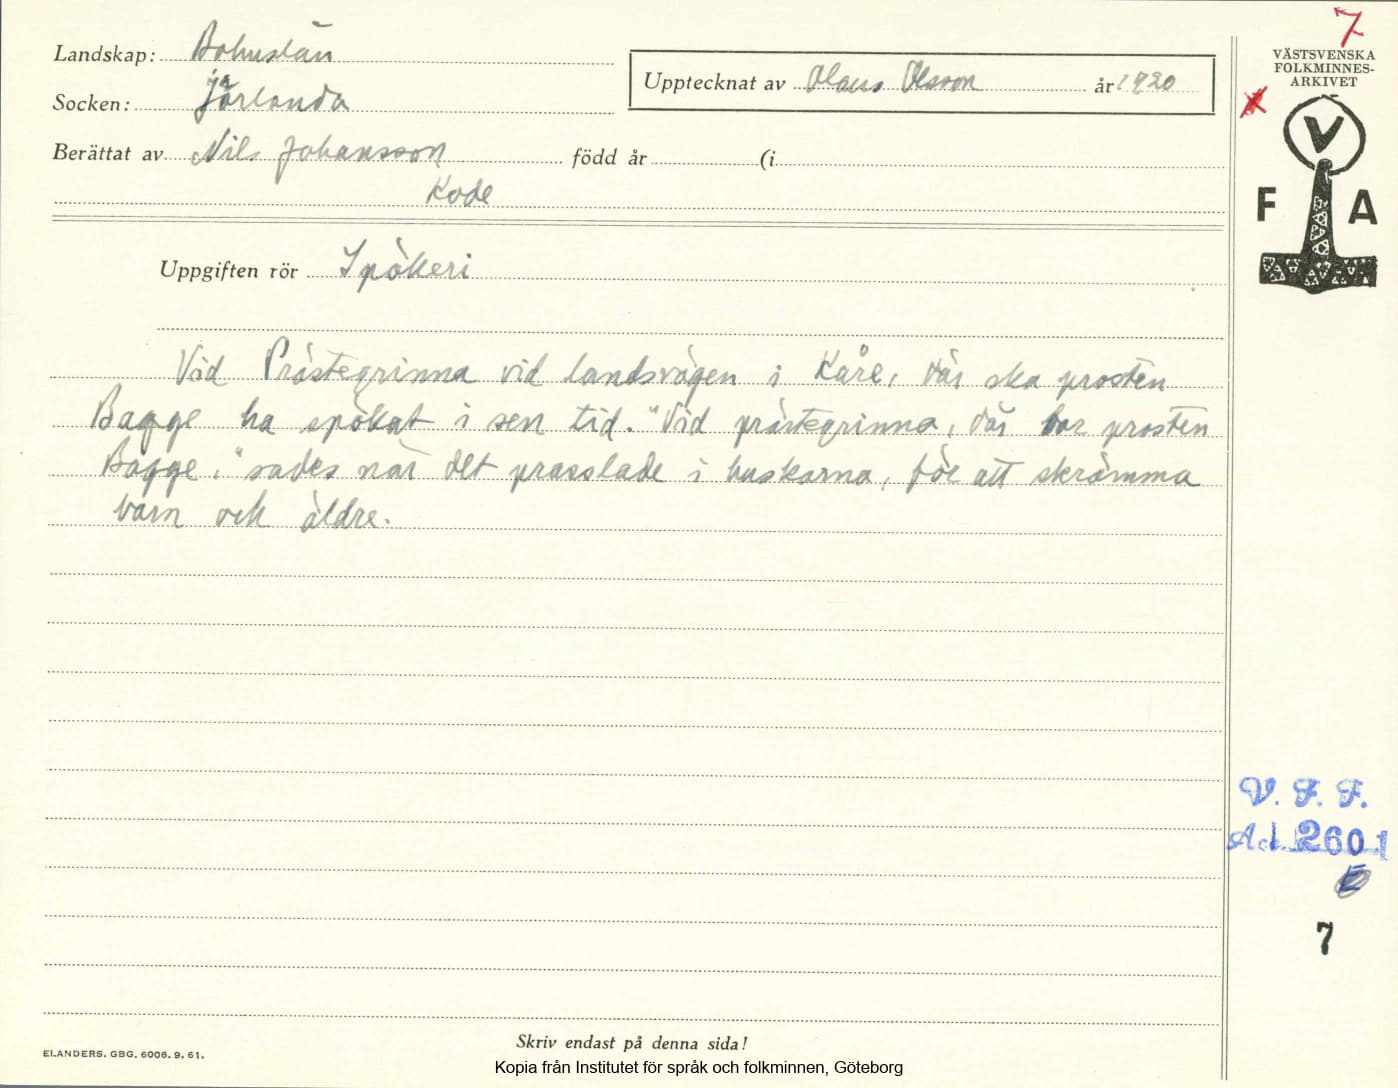 Landskap: Bohuslän
Socken: Jörlanda
Berättat av Nils Johansson född år (i
Kode
Upptecknat av Olaus Olsson år 1920
Uppgiften rör Spökeri
Vid Prästegrinna vid landsvägen i Kåre, där ska prosten
Bagge ha spökat i sen tid. "Vid prästegrinna, där bor prosten
Bagge," sades när det prasslade i buskarna, för att skrämma
barn och äldre.
7
VÄSTSVENSKA
FOLKMINNES-
ARKIVET
V
F A
V. F. F.
Acc. 2601
7
Skriv endast på denna sida!
ELANDERS. GBG. 6006. 9. 61.
Kopia från Institutet för språk och folkminnen, Göteborg